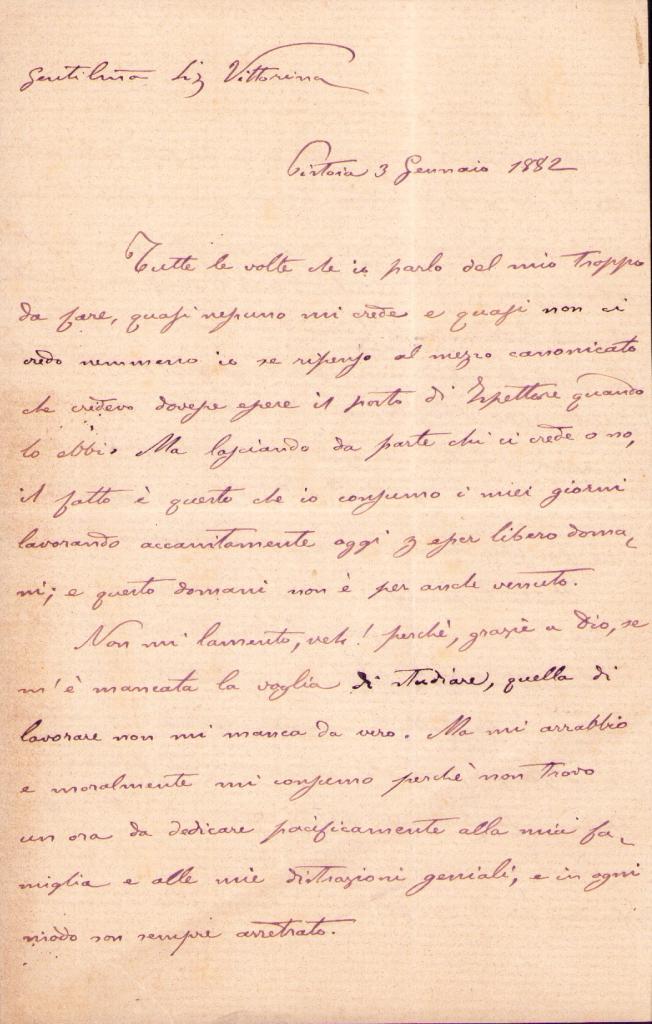 Gentilma Sig Vittorina
Pistoia 3 Gennaio 1882
Tutte le volte che io parlo del mio troppo
da fare, quasi nessuno mi crede e quasi non ci
credo nemmeno io se ripenso al mezzo canonicato
che credevo dovesse essere il posto di Ispettore quando
lo ebbi. Ma lasciando da parte chi ci crede o no,
il fatto è questo che io consumo i miei giorni
lavorando accanitamente oggi p esser libero doma-
ni; e questo domani non è per anche venuto.
Non mi lamento, veh! perchè, grazie a Dio, se
m'è mancata la voglia di studiare, quella di
lavorare non mi manca da vero. Ma mi arrabbio
e moralmente mi consumo perchè non trovo
un ora da dedicare pacificamente alla mia fa-
miglia e alle mie distrazioni geniali, e in ogni
modo son sempre arretrato.